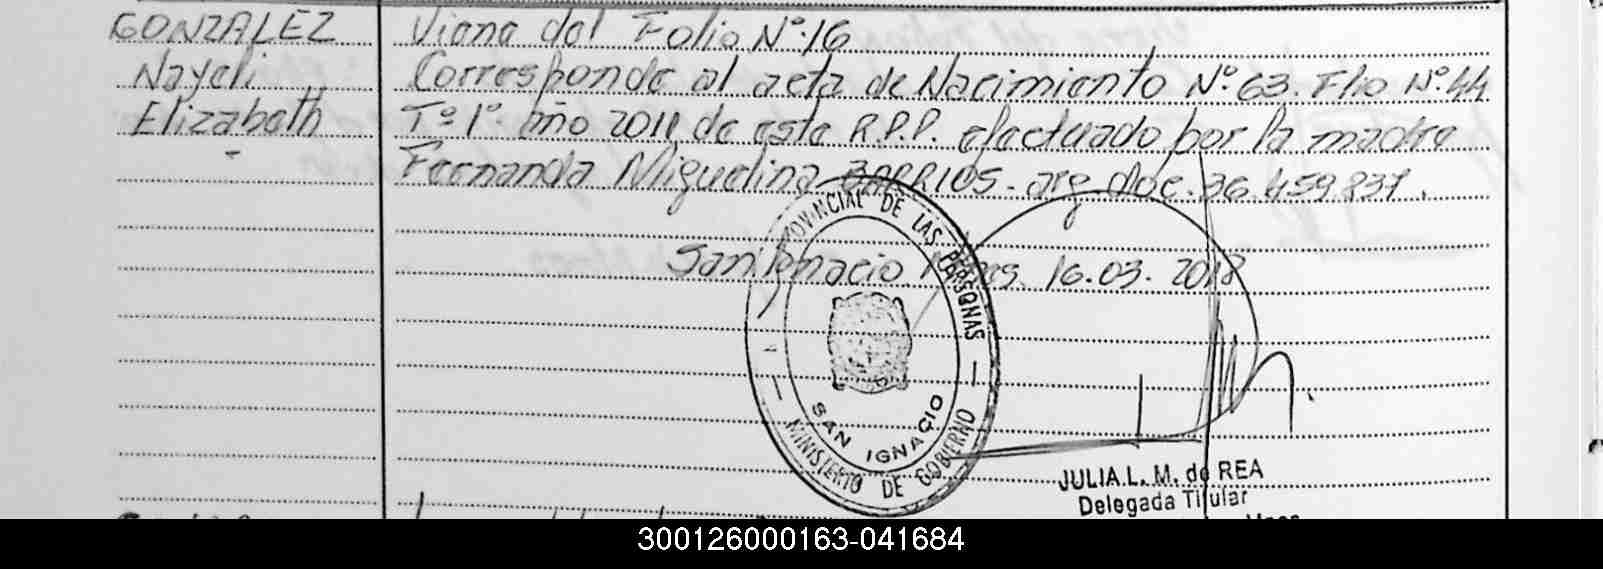 GONZALEZ
Nayeli
Elizabeth
Viene del Folio Nº 16
Corresponde al acta de Nacimiento Nº 63. Flio Nº 44
Tº 1º año 2011 de este R.P.P. efectuado por la madre
Fernanda Miguelina BARRIOS. arg doc. 36.459.837.
San Ignacio, Mnes. 16.03.2018
PROVINCIAL DE LAS PERSONAS
SAN IGNACIO
MINISTERIO DE GOBIERNO
JULIA L. M. de REA
Delegada Titular
300126000163-041684